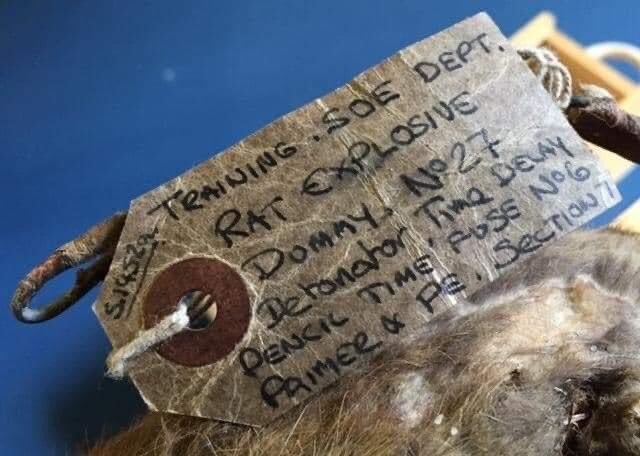 TRAINING. SOE DEPT.
RAT EXPLOSIVE
DUMMY. No 27
Detonator TIME DELAY
PENCIL TIME, FUSE No 6
PRIMER & PE. SECTION 7